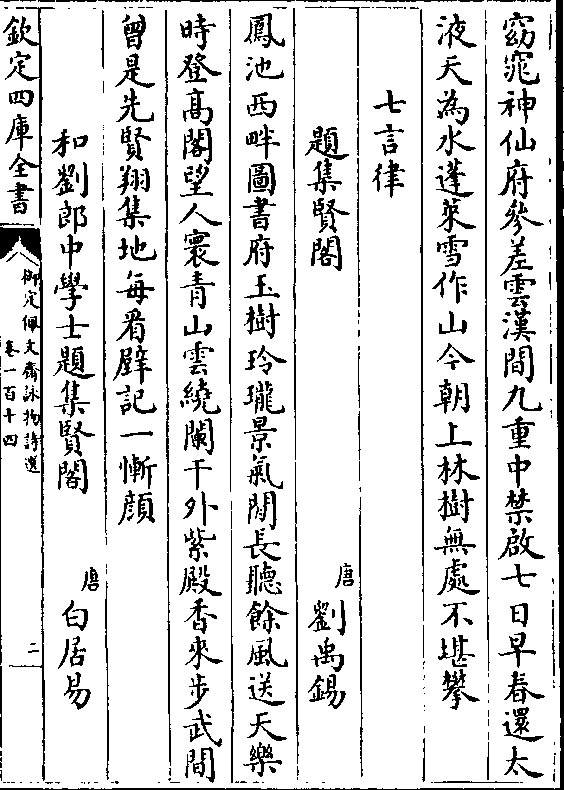 窈窕神仙府參差雲漢間九重中禁啟七日早春還太
液天為水蓬萊雪作山今朝上林樹無處不堪攀
七言律
題集賢閣 唐 劉禹錫
鳳池西畔圖書府玉樹玲瓏景氣閒長聽餘風送天樂
時登髙閣望人寰青山雲繞闌干外紫殿香來步武間
曽是先賢翔集地每看壁記一慚顔
和劉郎中學士題集賢閣 唐 白居易
欽定四庫全書
御定佩文齋詠物詩選
卷一百十四
二